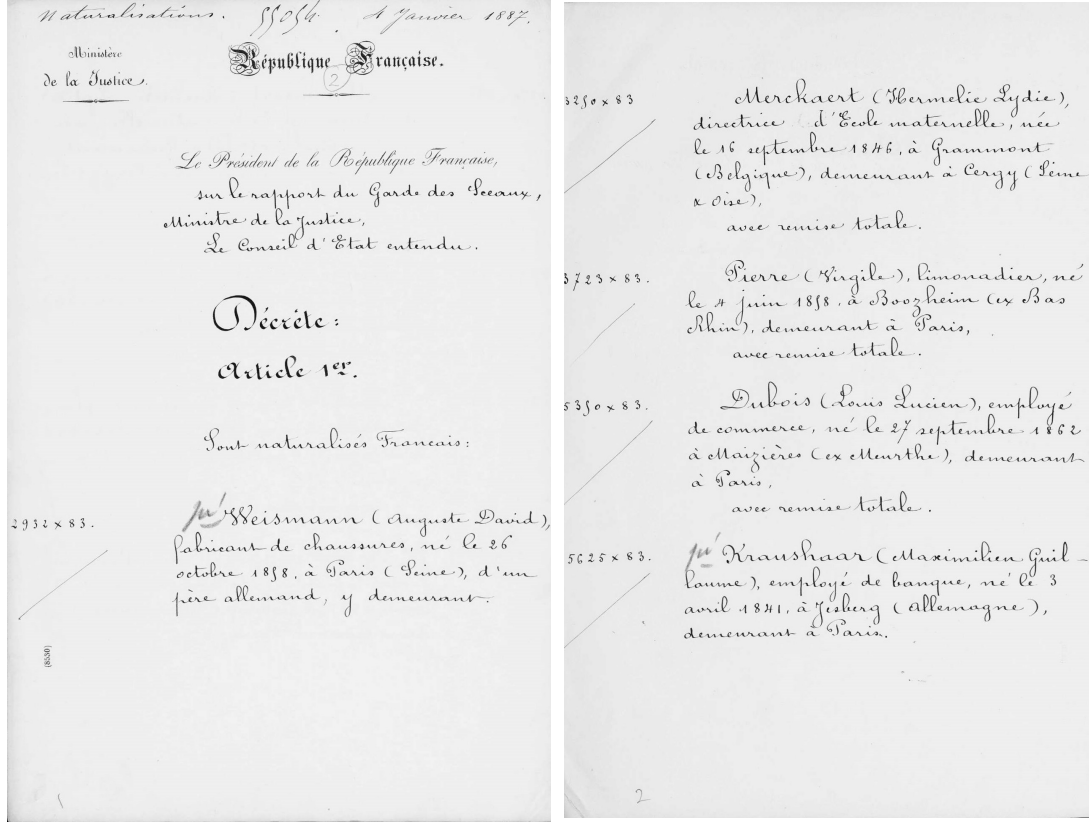 Naturalisations. 4 Janvier 1887.
Ministère
de la Justice.
République Française.
2
Le Président de la République Française,
sur le rapport du Garde des Sceaux,
Ministre de la Justice,
Le Conseil d'Etat entendu.
Décrète:
Article 1er.
Sont naturalisés Francais:
2932 x 83.
Weismann (Auguste David),
fabricant de chaussures, né le 26
octobre 1858, à Paris (Seine), d'un
père allemand, y demeurant.
(8530)
1
3250 x 83
Merckaert (Hermelie Lydie),
directrice d'Ecole maternelle, née
le 16 septembre 1846, à Grammont
(Belgique), demeurant à Cergy (Seine
& Oise),
avec remise totale.
3723 x 83.
Pierre (Virgile), limonadier, né
le 4 juin 1858, à Boozheim (ex Bas
Rhin), demeurant à Paris,
avec remise totale.
5350 x 83.
Dubois (Louis Lucien), employé
de commerce, né le 27 septembre 1862
à Maizières (ex Meurthe), demeurant
à Paris,
avec remise totale.
5625 x 83.
Kraushaar (Maximilien Guil-
laume), employé de banque, né le 3
avril 1841, à Jesberg (Allemagne),
demeurant à Paris.
2